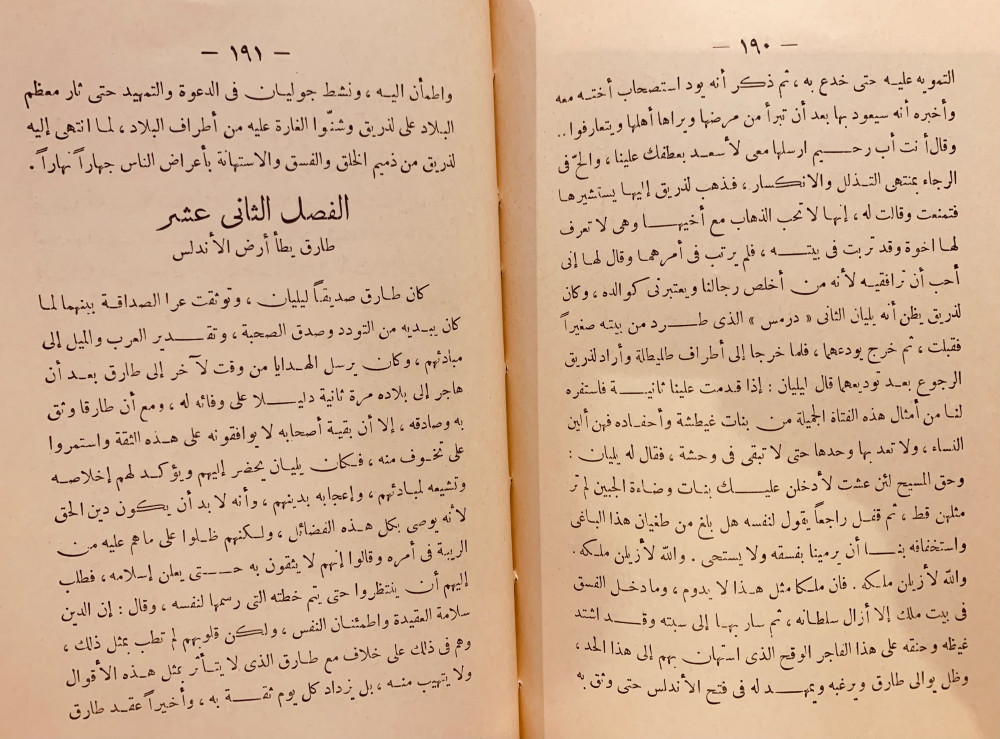 — ١٩٠ —
التمويه عليه حتى خدع به ، ثم ذكر أنه يود استصحاب أخته معه
وأخبره أنه سيعود بها بعد أن تبرأ من مرضها ويراها أهلها ويتعارفوا ..
وقال أنت أب رحيم ارسلها معى لأسعد بعطفك علينا ، والحّ فى
الرجاء بمنتهى التذلل والانكسار ، فذهب لذريق إليها يستشيرها
فتمنعت وقالت له ، إنها لا تحب الذهاب مع أخيها وهى لا تعرف
لها اخوة وقد تربت فى بيته ، فلم يرتب فى أمرهما وقال لها إنى
أحب أن ترافقيه لأنه من أخلص رجالنا ويعتبرنى كوالده ، وكان
لذريق يظن أنه يليان الثانى « درمس » الذى طرد من بيته صغيراً
فقبلت ، ثم خرج يودعهما ، فلما خرجا إلى أطراف طليطلة وأراد لذريق
الرجوع بعد توديعهما قال ليليان : إذا قدمت علينا ثانية فاستفره
لنا من أمثال هذه الفتاة الجميلة من بنات غيطشة وأحفاده فهن ألين
النساء ، ولا تعد بها وحدها حتى لا تبقى فى وحشة ، فقال له يليان :
وحق المسيح لئن عشت لأدخلن عليك بنات وضاءة الجبين لم تر
مثلهن قط ، ثم قفل راجعاً يقول لنفسه هل بلغ من طغيان هذا الباغى
واستخفافه بنا أن يرمينا بفسقه ولا يستحى . والله لأزيلن ملكه .
والله لأزيلن ملكه . فان ملكا مثل هذا لا يدوم ، وما دخل الفسق
فى بيت ملك إلا أزال سلطانه ، ثم سار بها إلى سبته وقد اشتد
غيظه وحنقه على هذا الفاجر الوقيح الذى استهان بهم إلى هذا الحد ،
وظل يوالى طارق ويرغبه ويمهد له فى فتح الأندلس حتى وثق به
— ١٩١ —
واطمأن اليه ، ونشط جوليان فى الدعوة والتمهيد حتى ثار معظم
البلاد على لذريق وشنّوا الغارة عليه من أطراف البلاد ، لما انتهى إليه
لذريق من ذميم الخلق والفسق والاستهانة بأعراض الناس جهاراً نهاراً .
الفصل الثانى عشر
طارق يطأ أرض الأندلس
كان طارق صديقاً ليليان ، وتوثقت عرا الصداقة بينهما لما
كان يبديه من التودد وصدق الصحبة ، وتقدير العرب والميل إلى
مبادئهم ، وكان يرسل الهدايا من وقت لآخر إلى طارق بعد أن
هاجر إلى بلاده مرة ثانية دليلا على وفائه له ، ومع أن طارقا وثق
به وصادقه ، إلا أن بقية أصحابه لا يوافقونه على هذه الثقة واستمروا
على تخوف منه ، فكان يليان يحضر إليهم ويؤكد لهم إخلاصه
وتشيعه لمبادئهم ، وإعجابه بدينهم ، وأنه لا بد أن يكون دين الحق
لأنه يوصى بكل هذه الفضائل ، ولكنهم ظلوا على ماهم عليه من
الريبة فى أمره وقالوا إنهم لا يثقون به حتى يعلن إسلامه ، فطلب
إليهم أن ينتظروا حتى يتم خطته التى رسمها لنفسه ، وقال : إن الدين
سلامة العقيدة واطمئنان النفس ، ولكن قلوبهم لم تطب بمثل ذلك ،
وهم فى ذلك على خلاف مع طارق الذى لا يتأثر بمثل هذه الأقوال
ولا يتهيب منه ، بل يزداد كل يوم ثقة به ، وأخيراً عقد طارق